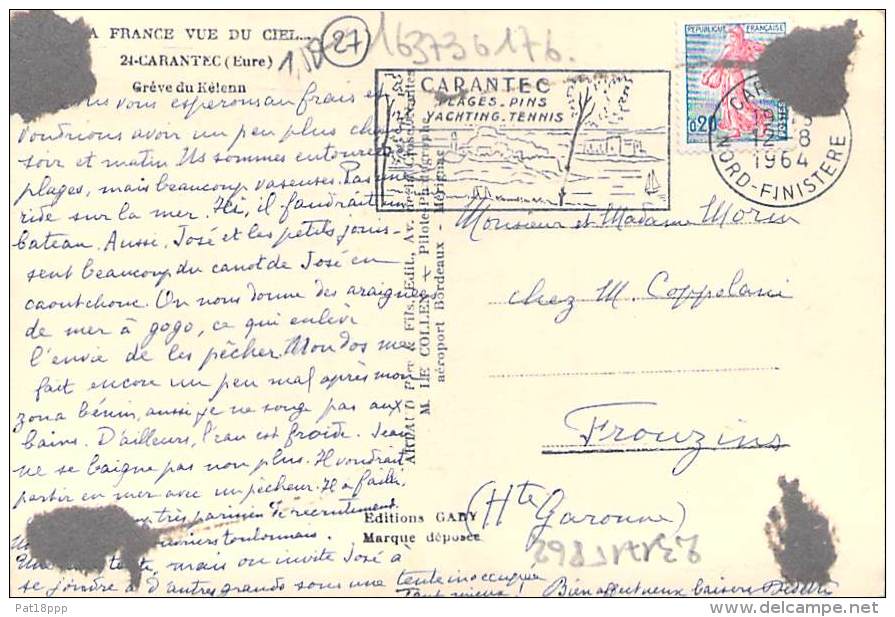 A FRANCE VUE DU CIEL...
24-CARANTEC (Eure)
Grève du Kélenn
1,50
27
163736176.
CARANTEC
PLAGES-PINS
YACHTING-TENNIS
REPUBLIQUE FRANÇAISE
0,20
POSTES
1964
NORD-FINISTERE
vous espérons au frais et
voudrions avoir un peu plus chaud
soir et matin. Ns sommes entourés
plages, mais beaucoup vaseuses. Pas une
ride sur la mer. Hé, il faudrait un
bateau. Aussi, José et les petits jouis-
sent beaucoup du canot de José en
caoutchouc. On nous donne des araignées
de mer à gogo, ce qui enlève
l'envie de les pêcher. Mon dos me
fait encore un peu mal après mon
zona bénin, aussi je ne songe pas aux
bains. D'ailleurs, l'eau est froide. Jean
ne se baigne pas non plus. Il voudrait
partir en mer avec un pêcheur. Il a failli
très parisien le recrutement
toulonnais.
tente, mais on invite José à
se joindre à d'autres grands sous une tente inoccupée
Tant mieux! Bien affectueux baisers
ARTAUD Père & Fils, Edit., Av. de la Close Nantes
M. LE COLLEN - Pilote-Photographe
aéroport Bordeaux - Mérignac
Monsieur et Madame Morin
chez M. Coppolani
Frouzins
(Hte Garonne)
Editions GABY
Marque déposée
Pat18ppp
© DELCAMPE.NET